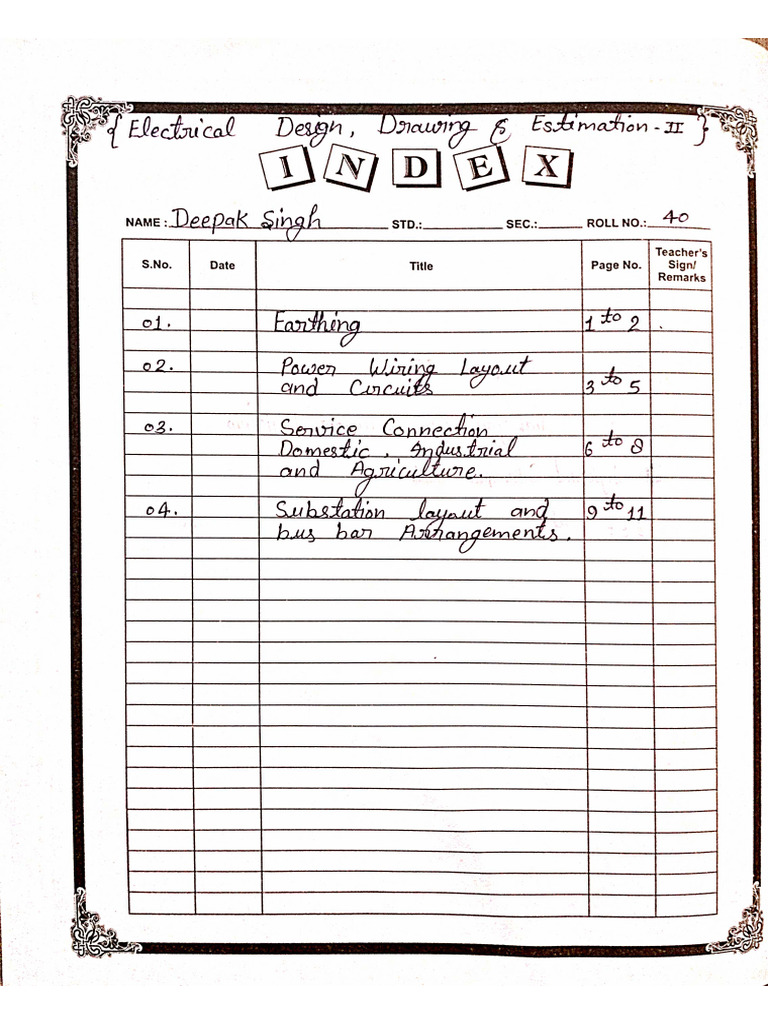 { Electrical Design, Drawing & Estimation - II }
INDEX
NAME : Deepak Singh STD.: SEC.: ROLL NO.: 40
S.No. Date Title Page No. Teacher's Sign/ Remarks
01. Earthing 1 to 2
02. Power Wiring Layout
and Circuits 3 to 5
03. Service Connection
Domestic, Industrial 6 to 8
and Agriculture.
04. Substation layout and 9 to 11
bus bar Arrangements.